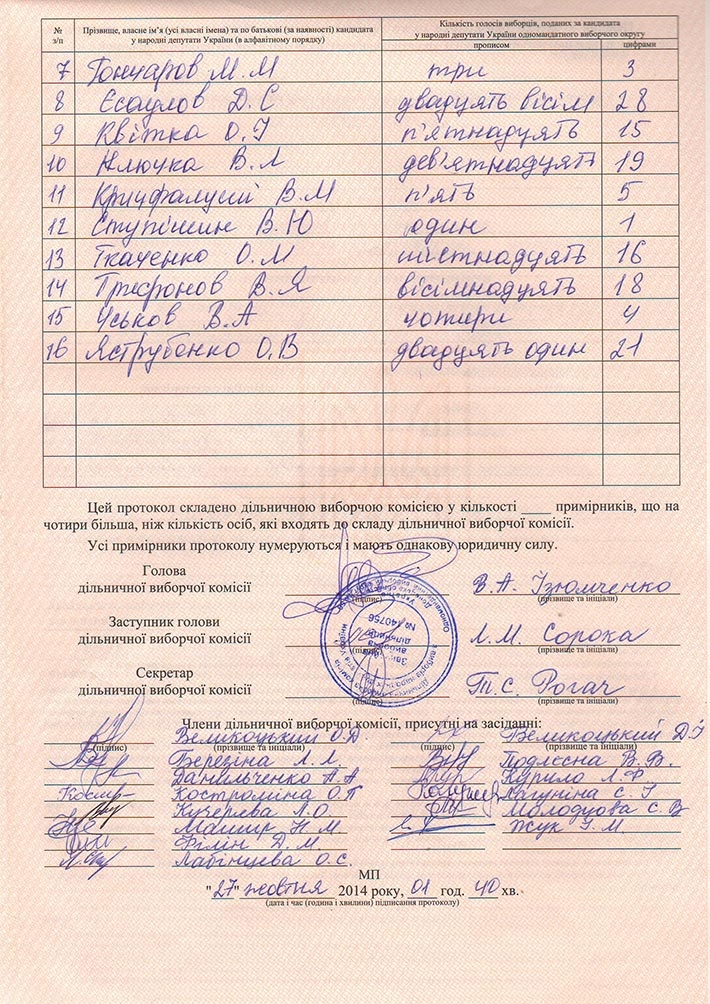 № з/п Прізвище, власне ім'я (усі власні імена) та по батькові (за наявності) кандидата у народні депутати України (в алфавітному порядку) Кількість голосів виборців, поданих за кандидата у народні депутати України одномандатного виборчого округу
прописом цифрами
7 Гончаров М.М три 3
8 Єсаулов Д.С двадцять вісім 28
9 Квітка О.І п'ятнадцять 15
10 Ключка В.Л дев'ятнадцять 19
11 Кричфалушій В.М п'ять 5
12 Ступішин В.Ю один 1
13 Ткаченко О.М шістнадцять 16
14 В.Я вісімнадцять 18
15 Уськов В.А чотири 4
16 Яструбенко О.В двадцять один 21
Цей протокол складено дільничною виборчою комісією у кількості ____ примірників, що на
чотири більша, ніж кількість осіб, які входять до складу дільничної виборчої комісії.
Усі примірники протоколу нумеруються і мають однакову юридичну силу.
Голова
дільничної виборчої комісії В.А. Ізюмченко
(підпис) (прізвище та ініціали)
Заступник голови
дільничної виборчої комісії Л.М. Сорока
(підпис) (прізвище та ініціали)
Секретар
дільничної виборчої комісії Т.С. Рогач
(підпис) (прізвище та ініціали)
№ 140756
Члени дільничної виборчої комісії, присутні на засіданні:
Великоцький О.Д. Великоцький Д.
(підпис) (прізвище та ініціали) (підпис) (прізвище та ініціали)
Березіна Л.Л. Подлєсна В.В.
Данильченко А.А Курило Л.Ф.
Костроміна О.П С.
Кучерева Л.О. Молодцова Є.В
Н.М. Жук І.М
Філін Д.М
Лабінцева О.С.
МП
"27" жовтня 2014 року, 01 год. 40 хв.
(дата і час (година і хвилини) підписання протоколу)